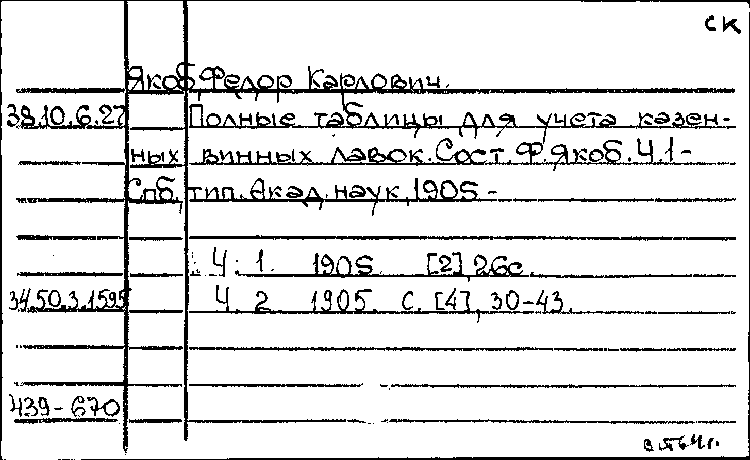 СК
Якоб, Федор Карлович.
38.10.6.27 Полные таблицы для учета казен-
ных винных лавок. Сост. Ф. Якоб. Ч. 1-
Спб., тип. Акад. наук, 1905 -
Ч. 1. 1905 [2], 26с.
34.50.3.1595 Ч. 2. 1905. С. [4], 30-43.
439-670